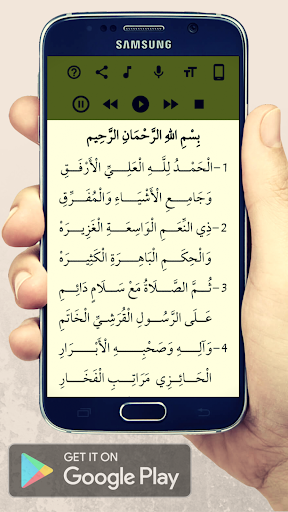 SAMSUNG
بِسْمِ اللهِ الرَّحْمَانِ الرَّحِيمِ
1- الْحَمْدُ لِلَّهِ الْعَلِيِّ الْأَرْفَقِ
وَجَامِعِ الْأَشْيَاءِ وَالْمُفَرِّقِ
2- ذِي النِّعَمِ الْوَاسِعَةِ الْغَزِيرَهْ
وَالْحِكَمِ الْبَاهِرَةِ الْكَثِيرَهْ
3- ثُمَّ الصَّلَاةُ مَعَ سَلَامٍ دَائِمِ
عَلَى الرَّسُولِ الْقُرَشِيِّ الْخَاتَمِ
4- وَآلِهِ وَصَحْبِهِ الْأَبْرَارِ
الْحَائِزِي مَرَاتِبِ الْفَخَارِ
GET IT ON
Google Play